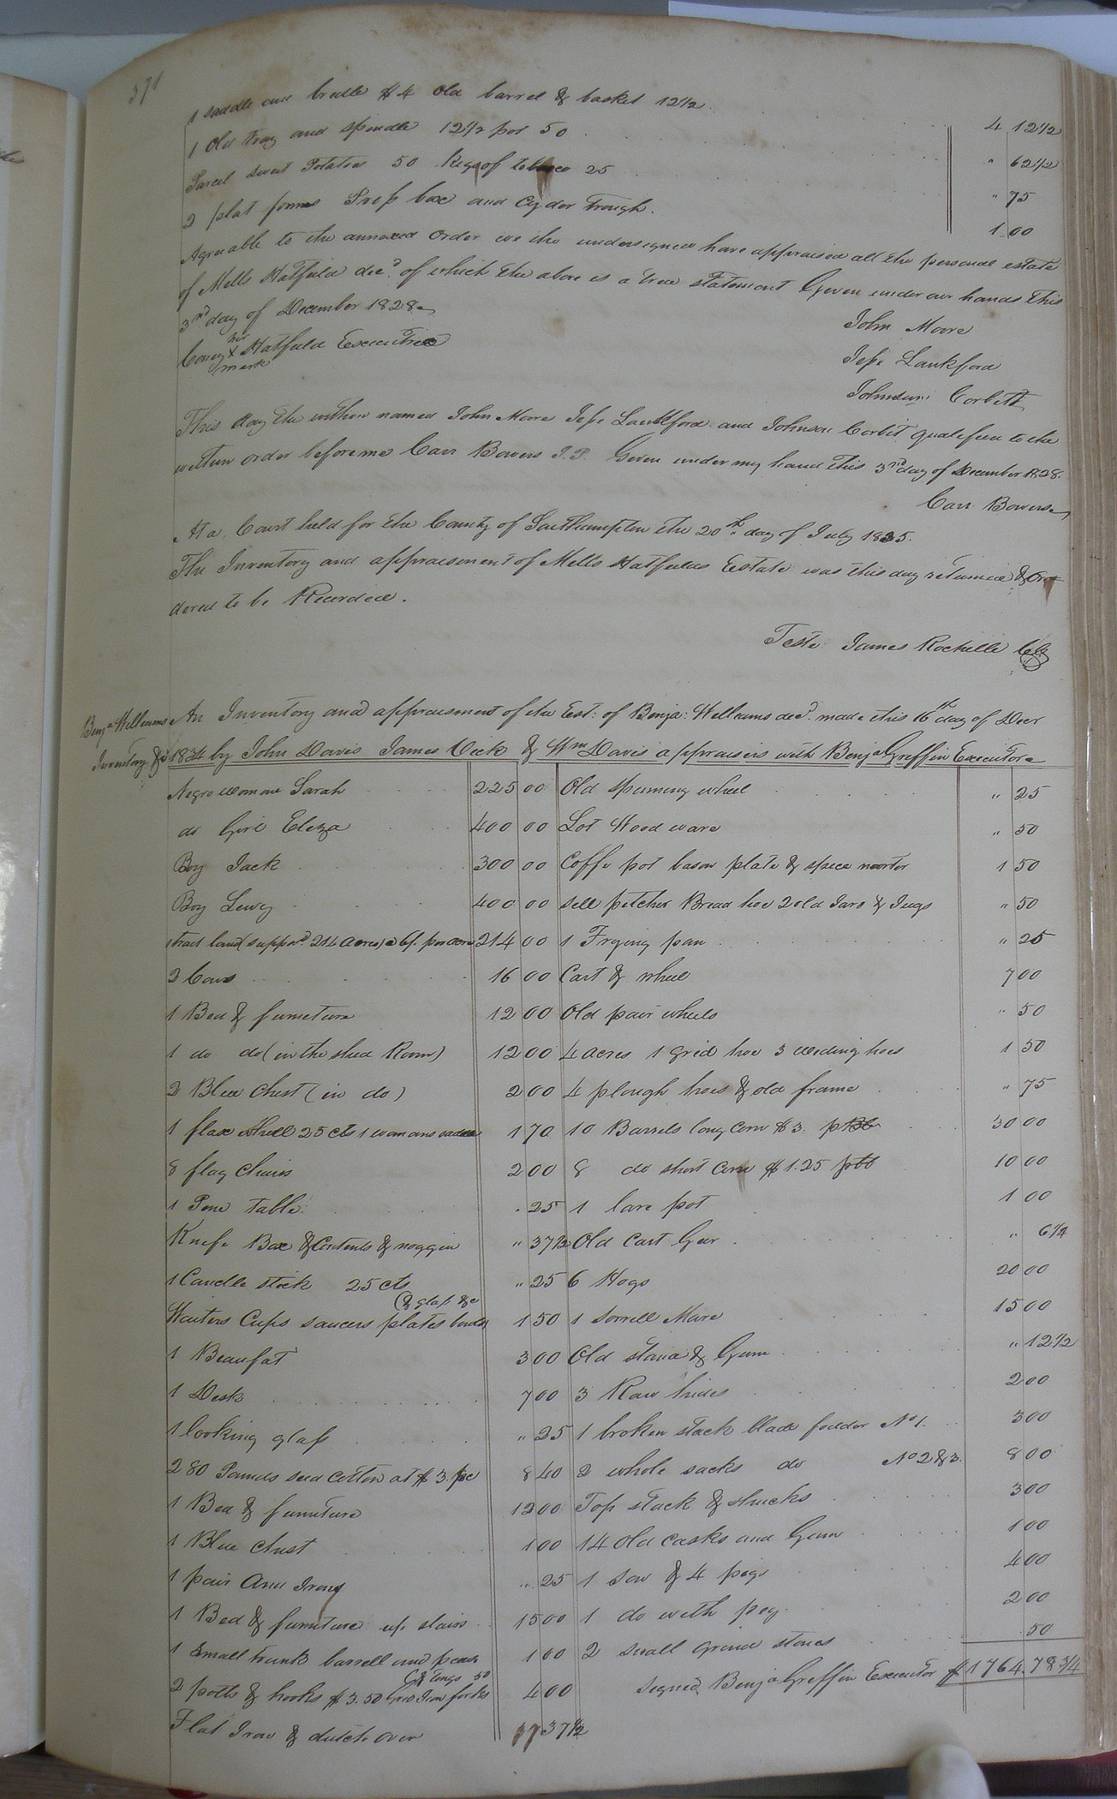 371
1 saddle and bridle $4 old barrel & basket 12½ 4 12½
1 Old tray and spindle 12½ pot 50 " 62½
Parcel sweet Potatoes 50 Keg of tobacco 25 " 75
2 plat forms Press box and Cyder Trough. 1 00
Agreeable to the annexed order we the undersigned have appraised all the personal estate
of Mills Hatfield decd. of which the above is a true statement Given under our hands this
3rd day of December 1828
John Moore
her
X Hatfield Executrix
mark
Jesse Lankford
Johnson Corbitt
This day the within named John Moore Jesse Lankford and Johnson Corbit qualified to the
written order before me Carr Bowers J.P. Given under my hand this 3rd day of December 1828.
Carr Bowers
At a Court held for the County of Southampton the 20th day of July 1835.
The Inventory and appraisement of Mills Hatfields Estate was this day returned & Or-
dered to be Recorded.
Teste James Rochelle Clk
Benja Williams
Inventory &c
An Inventory and appraisement of the Est: of Benja: Williams decd. made this 16th day of Decr
1834 by John Davis James Vick & Wm Davis appraisers with Benja Griffin Executor
Negro woman Sarah 225 00 Old spinning wheel " 25
do Girl Eliza 400 00 Lot Wood ware " 50
Boy Jack 300 00 Coffe pot bason plate & spice mortar 1 50
Boy Lewey 400 00 sell pitcher Bread hoe 2 old Jars & Jugs " 50
1 tract land (suppod 214 acres) @ 6/. per acre 214 00 1 Frying pan " 25
2 Cows 16 00 Cart & wheel 7 00
1 Bed & furniture 12 00 Old pair wheels " 50
1 do do (in the shed Room) 12 00 4 acres 1 grid hoe 3 weeding hoes 1 50
2 Blue Chest (in do) 2 00 4 plough hoes & old frame " 75
1 flax wheel 25 cts 1 womans saddle 1 70 10 Barrels long Corn $3. pbb 30 00
8 flag Chairs 2 00 8 do short Corn $1.25 pbb 10 00
1 Pine table. " 25 1 lare pot 1 00
Knife Box & Contents & noggin " 37½ Old Cart Gear " 6¼
1 Candle stick 25 cts " 25 6 Hogs 20 00
(& glass &c
Waiters Cups saucers plates bowls 1 50 1 Sorrell Mare 15 00
1 Beaufat 3 00 Old stand & Gum " 12½
1 Desk 7 00 3 Raw hides 2 00
1 looking glass " 25 1 broken stack blade fodder No 1. 3 00
280 Pounds seed Cotton at $3. pc 8 40 2 whole sacks do No 2 & 3. 8 00
1 Bed & furniture 12 00 Top stack & shucks 3 00
1 Blue Chest 1 00 14 Old casks and Gum 1 00
1 pair And Irons " 25 1 Sow & 4 pigs 4 00
1 Bed & furniture up stairs 15 00 1 do with pig 2 00
1 small trunk barrell and peas 1 00 2 small grind stones 50
(& tongs 50
2 potts & hooks $3.50 Grid Iron forks 4 00 signed Benja Griffin Executor $1764.78¾
Flat Iron & dutch oven 1 37½